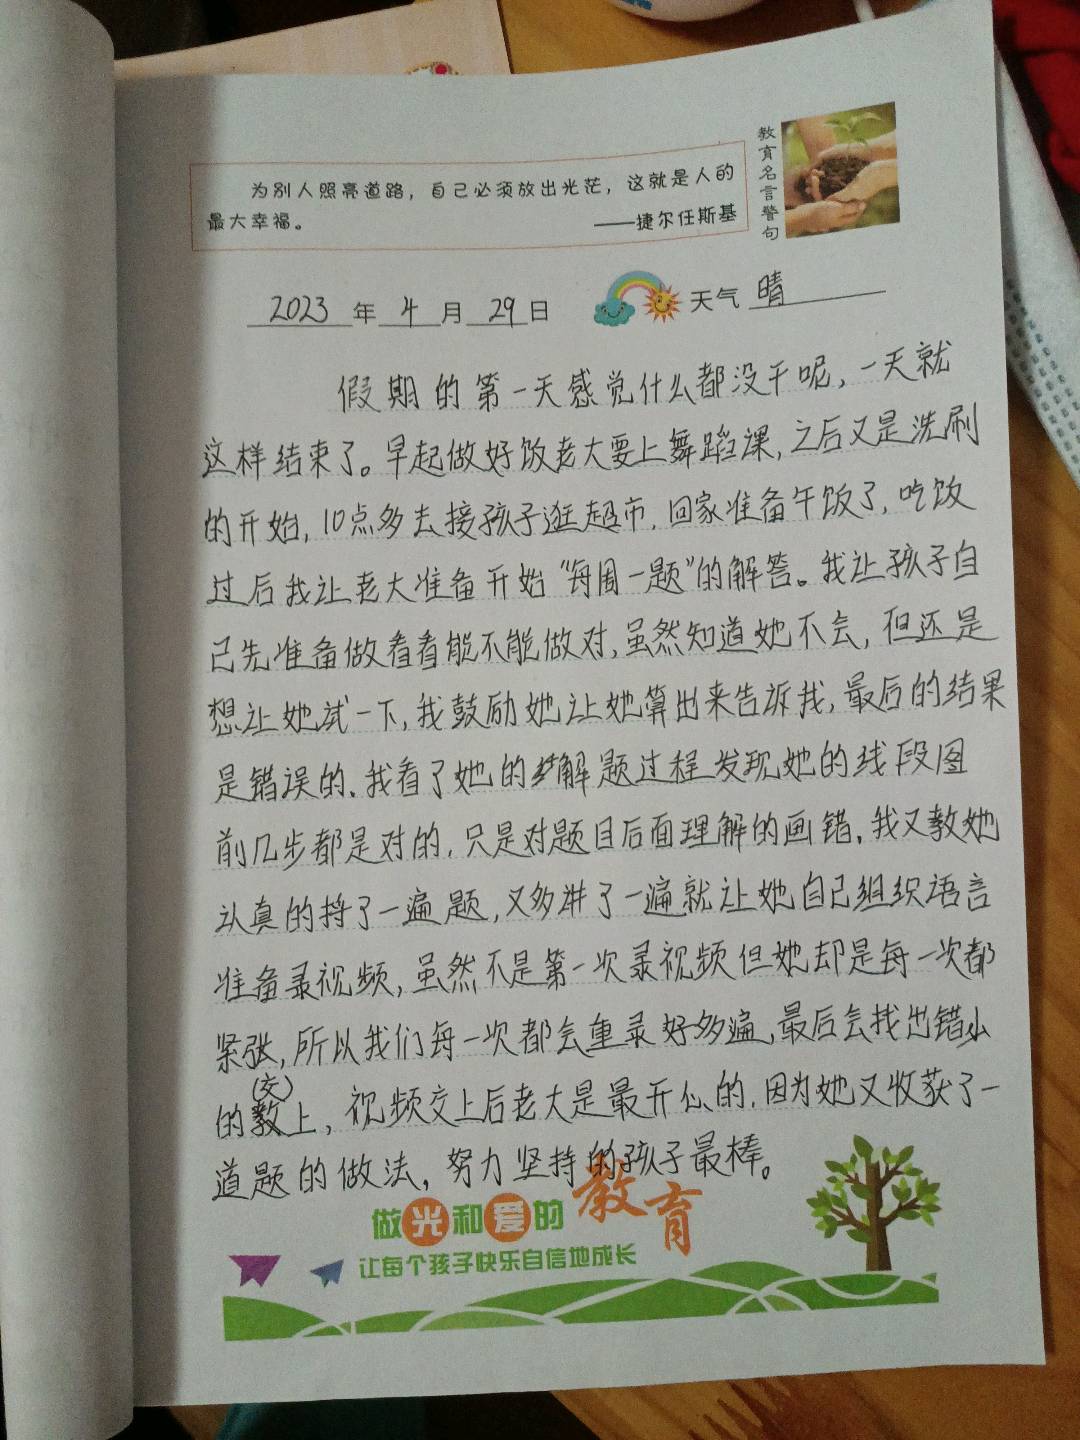 教育名言警句
为别人照亮道路，自己必须放出光芒，这就是人的
最大幸福。
——捷尔任斯基
2023年4月29日 天气 晴
假期的第一天感觉什么都没干呢，一天就
这样结束了。早起做好饭老大要上舞蹈课，之后又是洗刷
的开始，10点多去接孩子逛超市，回家准备午饭了，吃饭
过后我让老大准备开始“每周一题”的解答。我让孩子自
己先准备做看看能不能做对，虽然知道她不会，但还是
想让她试一下，我鼓励她让她算出来告诉我，最后的结果
是错误的，我看了她的解题过程发现她的线段图
前几步都是对的，只是对题目后面理解的画错，我又教她
认真的捋了一遍题，又多讲了一遍就让她自己组织语言
准备录视频，虽然不是第一次录视频但她却是每一次都
紧张，所以我们每一次都会重录好多遍，最后会找出错少
的教(交)上，视频交上后老大是最开心的，因为她又收获了一
道题的做法，努力坚持的孩子最棒。
做光和爱的教育
让每个孩子快乐自信地成长